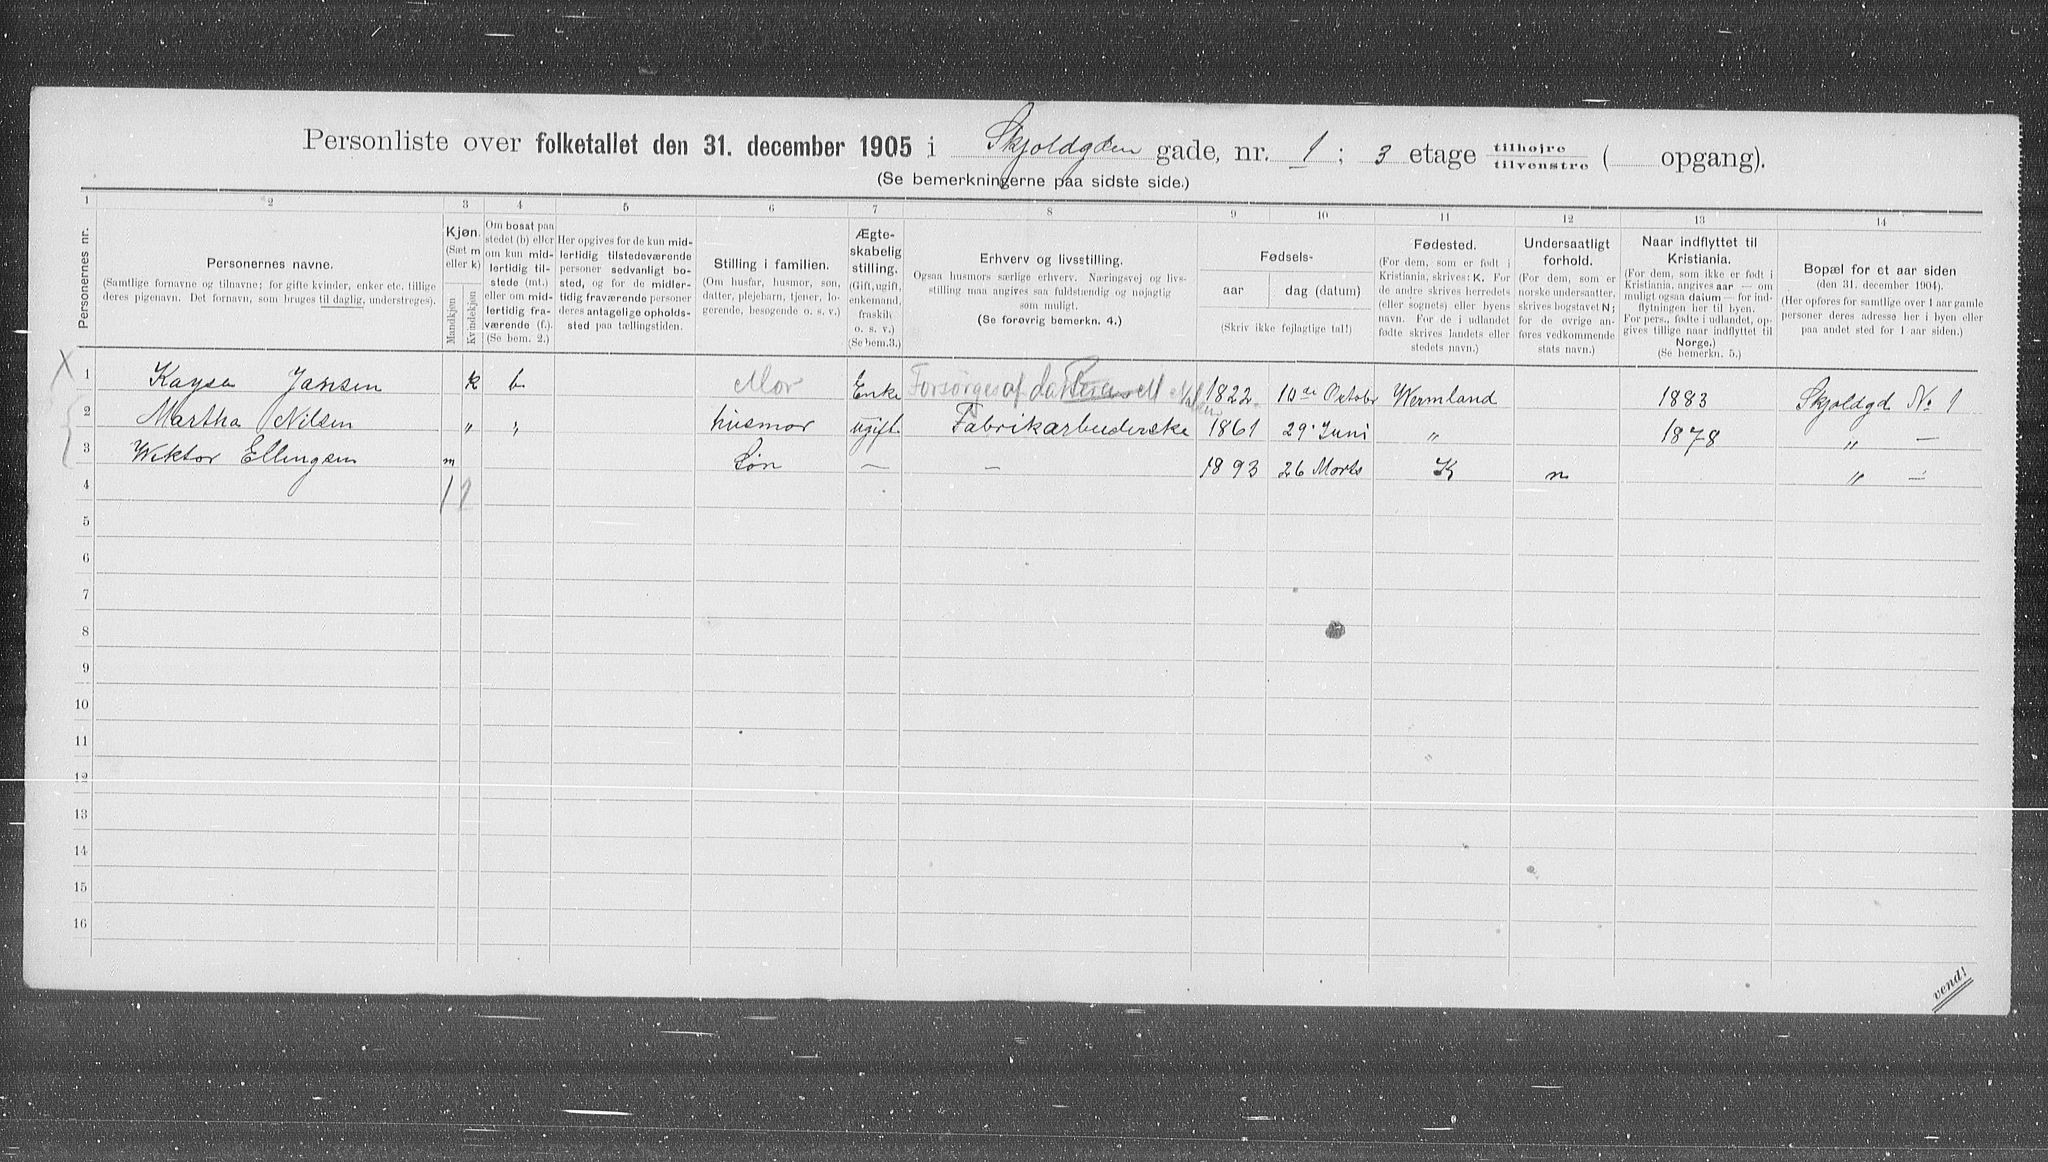 Personliste over folketallet den 31. december 1905 i Skjoldgden gade, nr. 1 ; 3 etage tilhøjre tilvenstre ( opgang).
(Se bemerkningerne paa sidste side.)
1 2 3 4 5 6 7 8 9 10 11 12 13 14
Personernes nr.
Personernes navne.
(Samtlige fornavne og tilnavne; for gifte kvinder, enker etc. tillige
deres pigenavn. Det fornavn, som bruges til daglig, understreges).
Kjøn.
(Sæt m
eller k)
Mandkjøn
Kvindekjøn
Om bosat paa
stedet (b) eller
om kun mid-
lertidig til-
stede (mt.)
eller om mid-
lertidig fra-
værende (f.).
(Se bem. 2.)
Her opgives for de kun mid-
lertidig tilstedeværende
personer sedvanligt bo-
sted, og for de midler-
tidig fraværende personer
deres antagelige opholds-
sted paa tællingstiden.
Stilling i familien.
(Om husfar, husmor, søn,
datter, plejebarn, tjener, lo-
gerende, besøgende o. s. v.)
Ægte-
skabelig
stilling.
(Gift, ugift,
enkemand,
fraskilt
o. s. v.)
(Se bem.3.)
Erhverv og livsstilling.
Ogsaa husmors særlige erhverv. Næringsvej og livs-
stilling maa angives saa fuldstændig og nøjagtig
som muligt.
(Se forøvrig bemerkn. 4.)
Fødsels-
aar
dag (datum)
(Skriv ikke fejlagtige tal!)
Fødested.
(For dem, som er født i
Kristiania, skrives: K. For
de andre skrives herredets
(eller sognets) eller byens
navn. For de i udlandet
fødte skrives landets eller
stedets navn.)
Undersaatligt
forhold.
(For dem, som er
norske undersaatter,
skrives bogstavet N;
for de øvrige an-
føres vedkommende
stats navn.)
Naar indflyttet til
Kristiania.
(For dem, som ikke er født i
Kristiania, angives aar — om
muligt ogsaa datum — for ind-
flytningen her til byen.
For pers., fødte i udlandet, op-
gives tillige naar indflyttet til
Norge.)
(Se bemerkn. 5.)
Bopæl for et aar siden
(den 31. december 1904).
(Her opføres for samtlige over 1 aar gamle
personer deres adresse her i byen eller
paa andet sted for 1 aar siden.)
X 1 Kaysa Jansen k b Mor Enke Forsørges af datteren 1822 10de Oktobr Wermland 1883 Skjoldgd No 1
2 Martha Nilsen " " husmor ugift Fabrikarbeiderske 1861 29' Juni " 1878 " —
3 Wiktor Ellingsen m Søn — — 1893 26 Marts K n " —
4 1 2
5
6
7
8
9
10
11
12
13
14
15
16
vend!